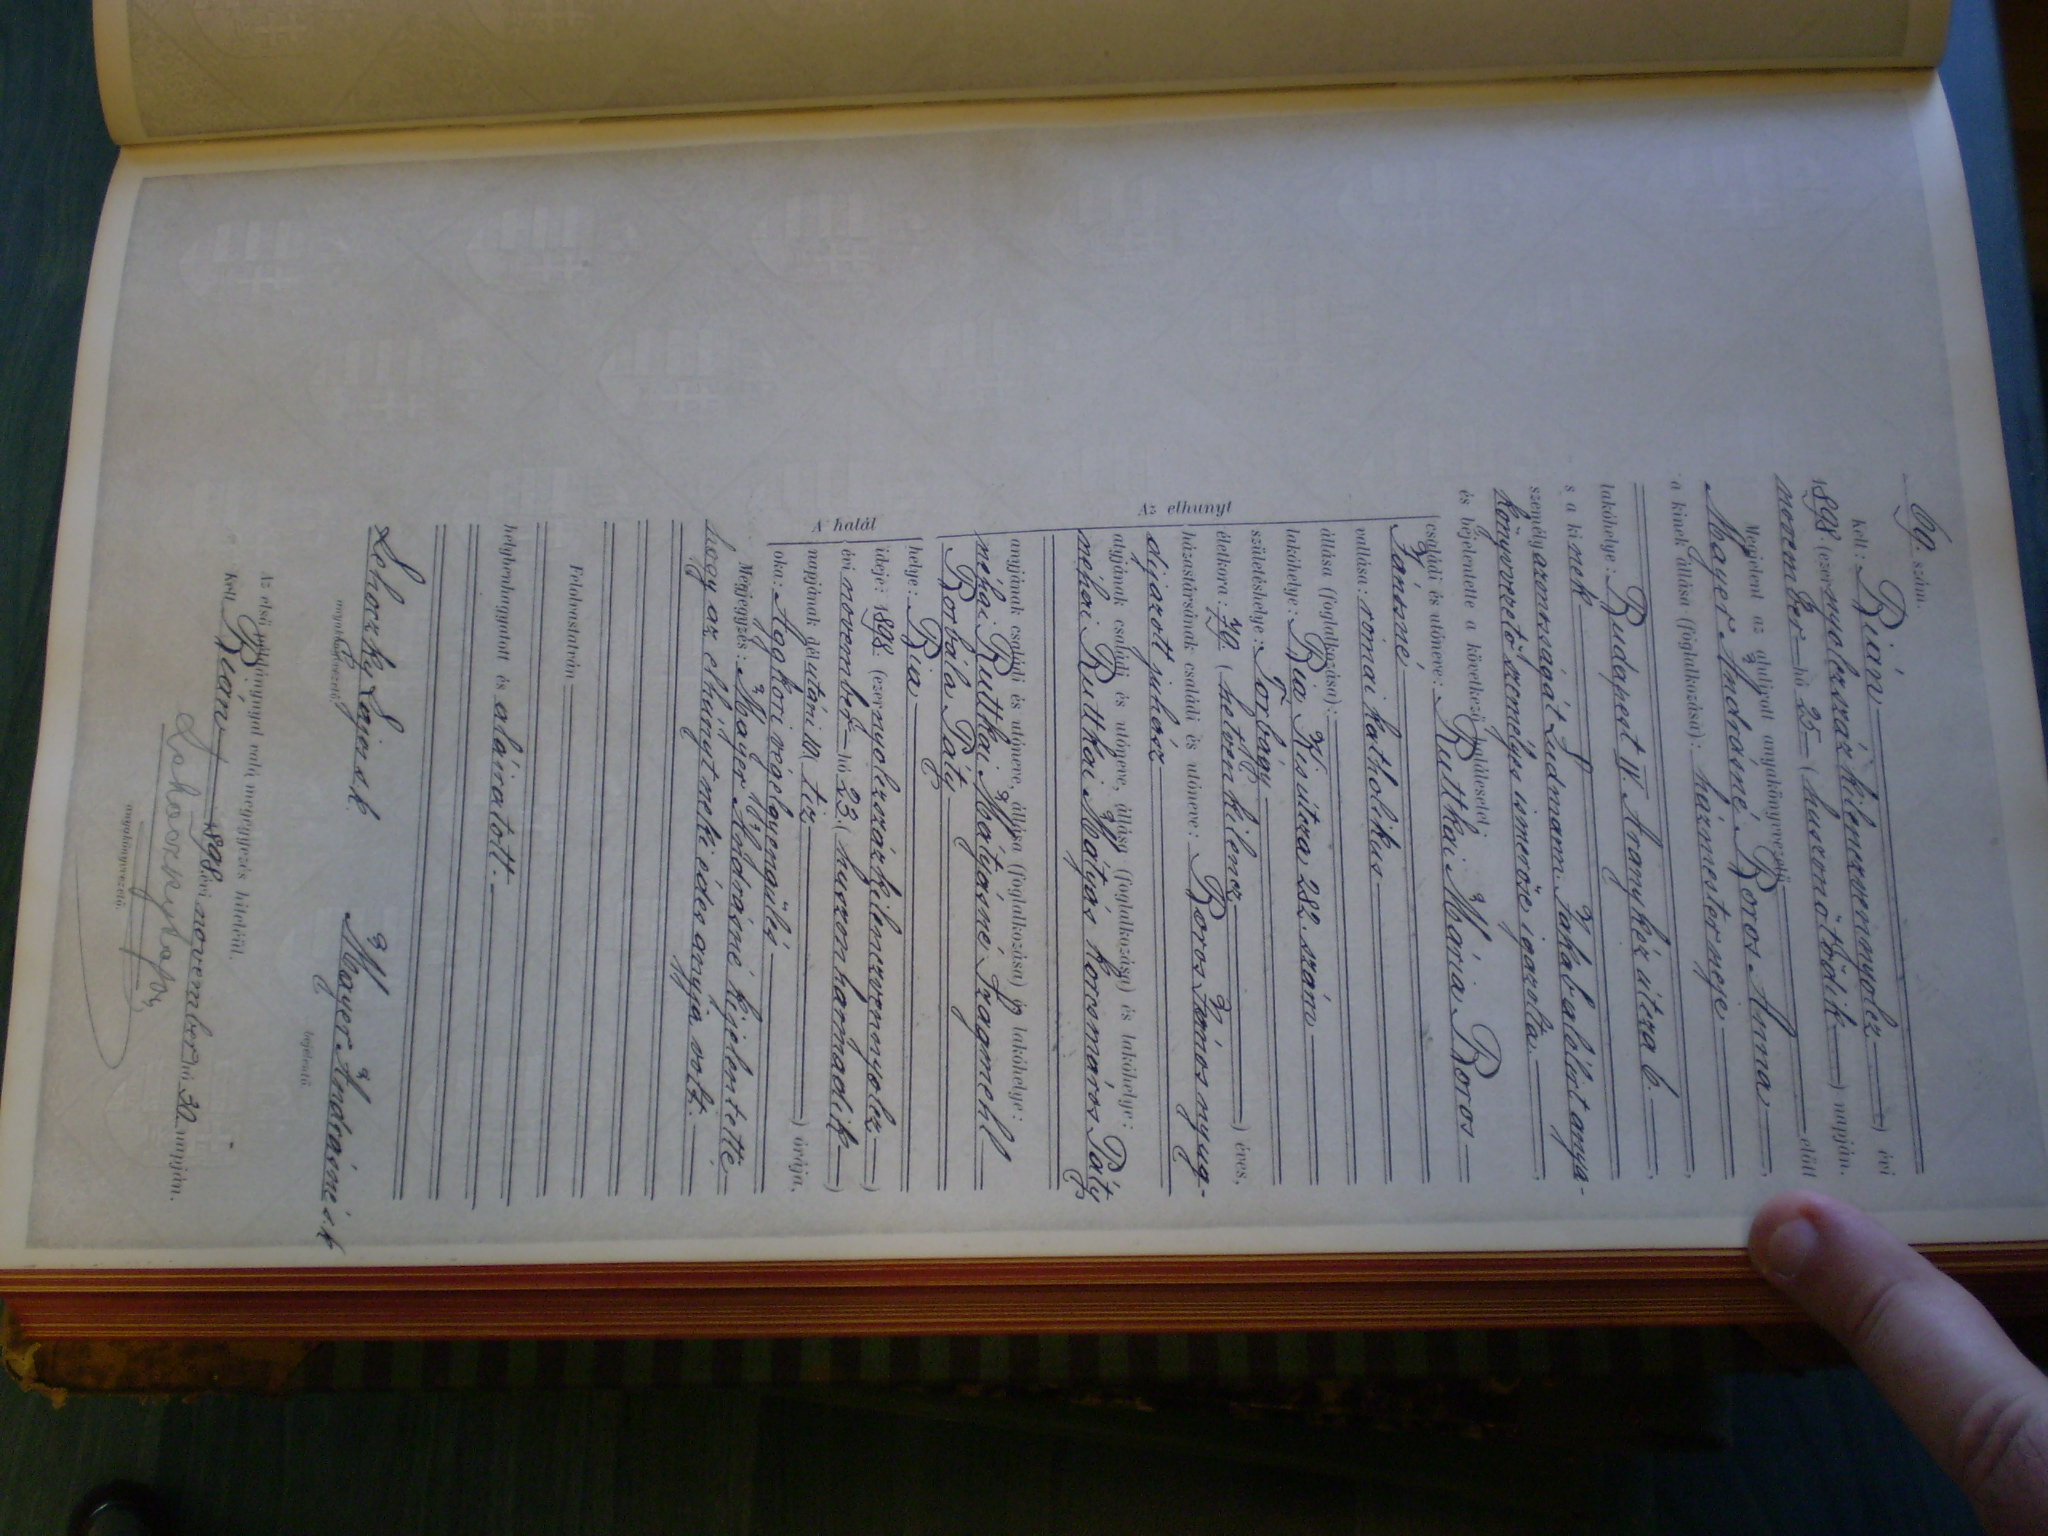 69. szám.
Kelt: Bián 
1898 (ezernyolczszázkilenczvennyolcz) évi
november hó 25 (huszonötödik) napján.
Megjelent az alulirott anyakönyvvezető előtt
Mayer Andrásné Boros Anna,
a kinek állása (foglalkozása): házmester neje,
lakóhelye: Budapest IV. Aranykéz útcza 6.
s a kinek
személyazonosságát Ludmann Jakab alólírt anya-
könyvvezető személyes ismerőse igazolta.
és bejelentette a következő halálesetet:
családi és utóneve: Ruttkai Mária Boros
Jánosné
vallása: római katholikus
állása (foglalkozása):
lakóhelye: Bia Kis útcza 282. szám
születéshelye: Torbágy
életkora: 79. (hetven kilencz) éves,
házastársának családi és utóneve: Boros János nyug-
díjazott juhász
atyjának családi és utóneve, állása (foglalkozása) és lakóhelye:
néhai Ruttkai Mátyás korcsmáros Páty
anyjának családi és utóneve, állása (foglalkozása) és lakóhelye:
néhai Ruttkai Mátyásné
Borbála Páty
Az elhunyt
helye: Bia
ideje: 1898 (ezernyolczszázkilenczvennyolcz)
évi november hó 23 (huszonharmadik)
napjának délutáni 10 (tiz) órája,
oka: Aggkori végelgyengülés
A halál
Megjegyzés: Mayer Andrásné kijelentette
hogy az elhúnyt neki édes anyja volt.
Felolvastatván
helybenhagyatott és aláiratott.
Lehoczky Lajos sk
anyakönyvvezető.
Mayer Andrásné s.k
bejelentő.
Az első példánynyal való megegyezés hiteléül.
Kelt Bián 1898. évi november hó 30 napján.
anyakönyvvezető.